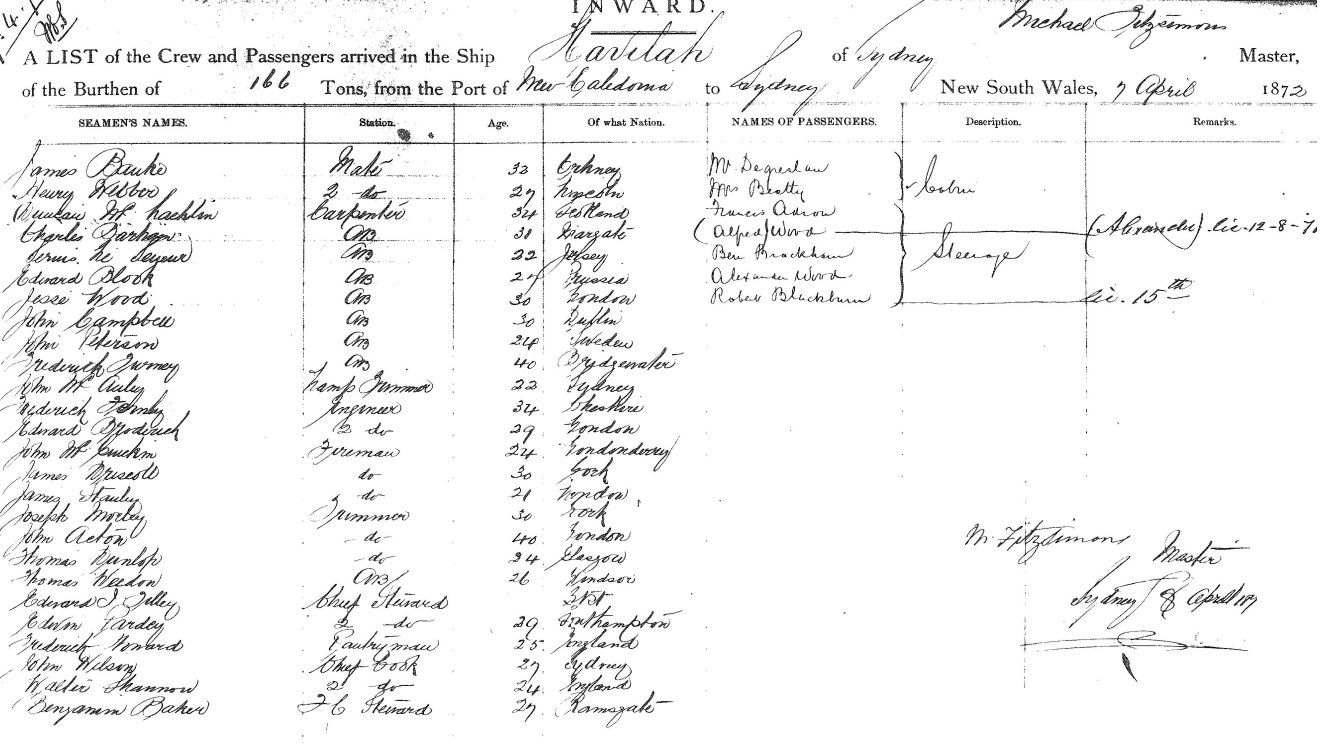 INWARD.
A LIST of the Crew and Passengers arrived in the Ship Havilah of Sydney Michael Fitzsimons Master,
of the Burthen of 166 Tons, from the Port of New Caledonia to Sydney New South Wales, 7 April 1872
SEAMEN'S NAMES. Station. Age. Of what Nation. NAMES OF PASSENGERS. Description. Remarks.
James Mate 32 Orkney Mr
Henry Webber 2 do 27 Lincoln Mrs Beatty Cabin
Duncan Carpenter 34 Scotland Francis Aaron
Charles AB 31 Margate (Alfred) Wood (Alexander) lic. 12-8-
Le AB 22 Jersey Ben Steerage
Edward Block AB 27 Prussia Alexander Wood
Jesse Wood AB 30 London Robert Blackburn lic. 15th
John Campbell AB 30 Dublin
John Peterson AB 24 Sweden
Frederick AB 40 Bridgewater
John Mc Auley Lamp Trimmer 22 Sydney
Frederick Engineer 34 Cheshire
Edward Broderick 2 do 29 London
John Mc Fireman 24 Londonderry
James Driscoll do 30 Cork
James Stanley do 21 London
Joseph Morley Trimmer 30
John Acton do 40 London
Thomas Dunlop do 24 Glasgow
Thomas Weedon AB 26 Windsor
Edward J Tilley Chief Steward
Edwin 2 do 29 Southampton
Frederick Pantryman 25 England
John Wilson Chief Cook 27 Sydney
Walter Shannon 2 do 24 England
Benjamin Baker F C Steward 27 Ramsgate
M. Fitzsimons Master
Sydney 8 April 187